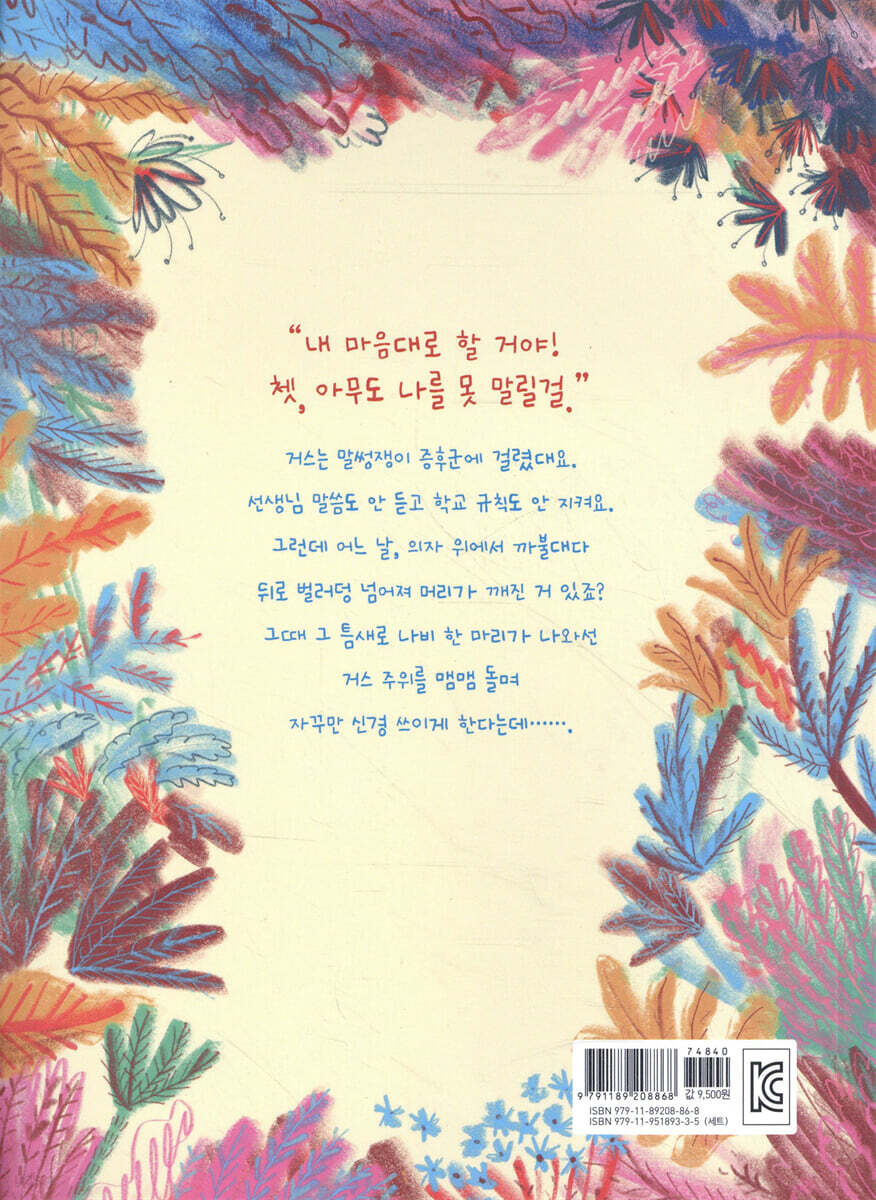 “내 마음대로 할 거야!
쳇, 아무도 나를 못 말릴걸.”
거스는 말썽쟁이 증후군에 걸렸대요.
선생님 말씀도 안 듣고 학교 규칙도 안 지켜요.
그런데 어느 날, 의자 위에서 까불대다
뒤로 벌러덩 넘어져 머리가 깨진 거 있죠?
그때 그 틈새로 나비 한 마리가 나와선
거스 주위를 맴맴 돌며
자꾸만 신경 쓰이게 한다는데…….
74840
9 791189 208868 값 9,500원
ISBN 979-11-89208-86-8
ISBN 979-11-951893-3-5 (세트)